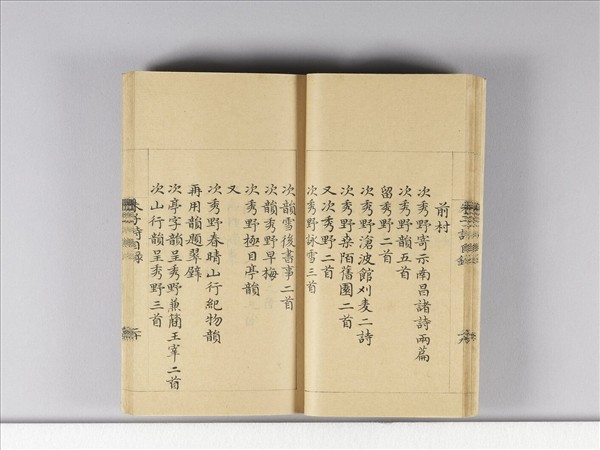 前村
次秀野寄示南昌諸詩兩篇
次秀野韻五首
留秀野二首
次秀野滄波館刈麦二詩
次秀野桒陌舊園二首
又次秀野二首
次秀野詠雪三首
次韻雪後書事二首
次韻秀野早梅
次秀野極目亭韻
又
次秀野春晴山行紀物韻
再用韻題翠
次亭字韻呈秀野兼簡王宰二首
次山行韻呈秀野三首